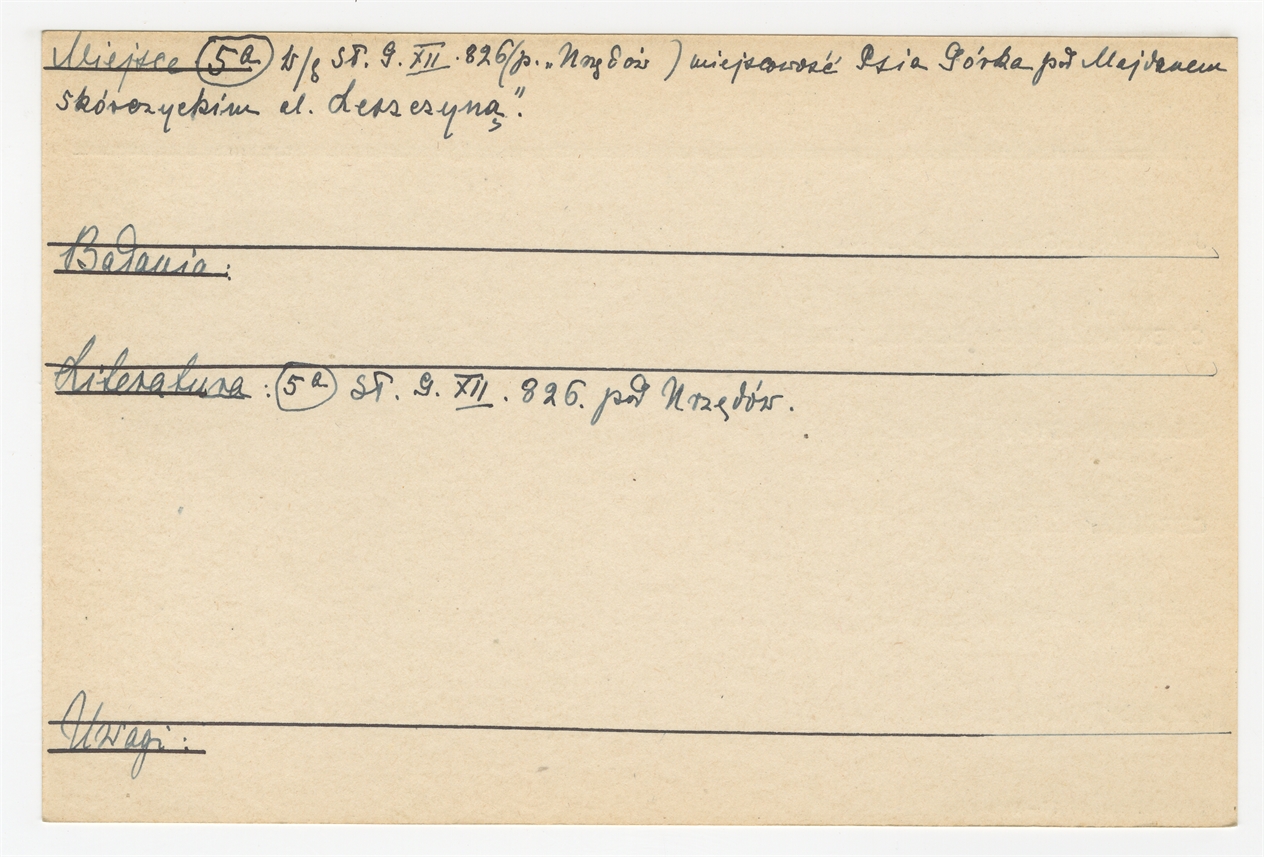 Miejsce 5a w/g Sł. G. XII. 826 (p. „Urzędów") miejscowość Psia Górka pod Majdanem
Skórczyckim al. Leszczyną".
Badania:
Literatura: 5a Sł. G. XII. 826. pod Urzędów.
Uwagi: